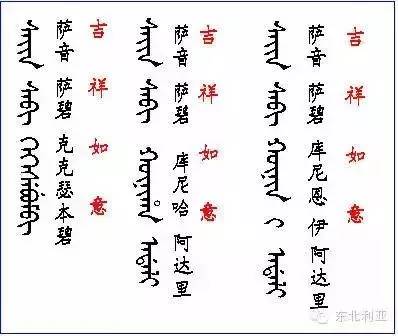 ᠰᠠᡳᠨ ᠰᠠᠪᡳ ᡴᡝᡴᠰᡝᠪᡠᠮᠪᡳ
萨音 萨碧 克克瑟本碧
吉祥如意
ᠰᠠᡳᠨ ᠰᠠᠪᡳ ᡤᡡᠨᡳᡥᠠ ᠠᡩᠠᠯᡳ
萨音 萨碧 库尼哈 阿达里
吉祥如意
ᠰᠠᡳᠨ ᠰᠠᠪᡳ ᡤᡡᠨᡳᠨ ᡳ ᠠᡩᠠᠯᡳ
萨音 萨碧 库尼恩 伊 阿达里
吉祥如意
东北利亚